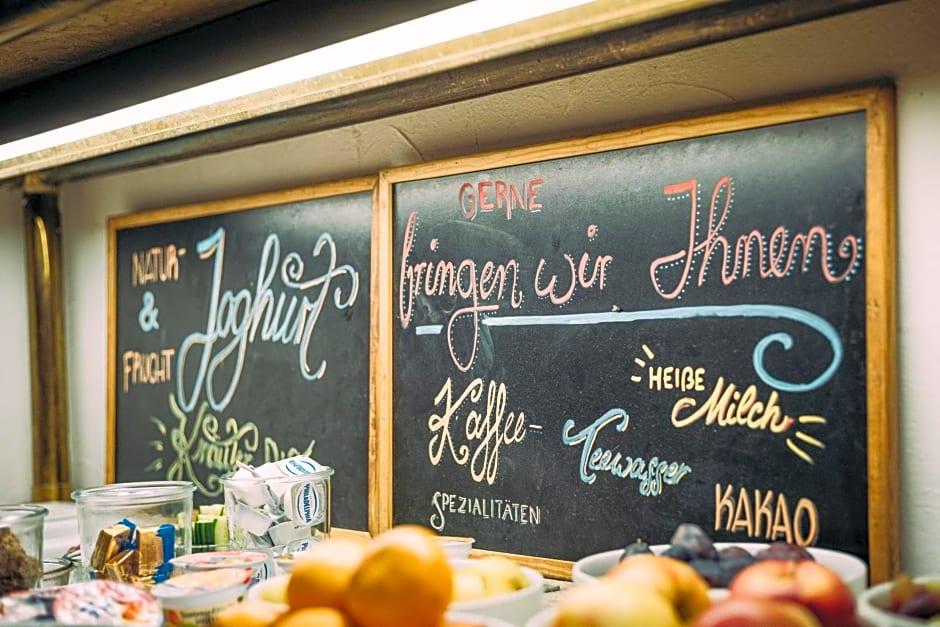 NATUR-
&
FRUCHT
Joghurt
Kräuter
GERNE
bringen wir Ihnen
Kaffee-
SPEZIALITÄTEN
Teewasser
HEIßE
Milch
KAKAO